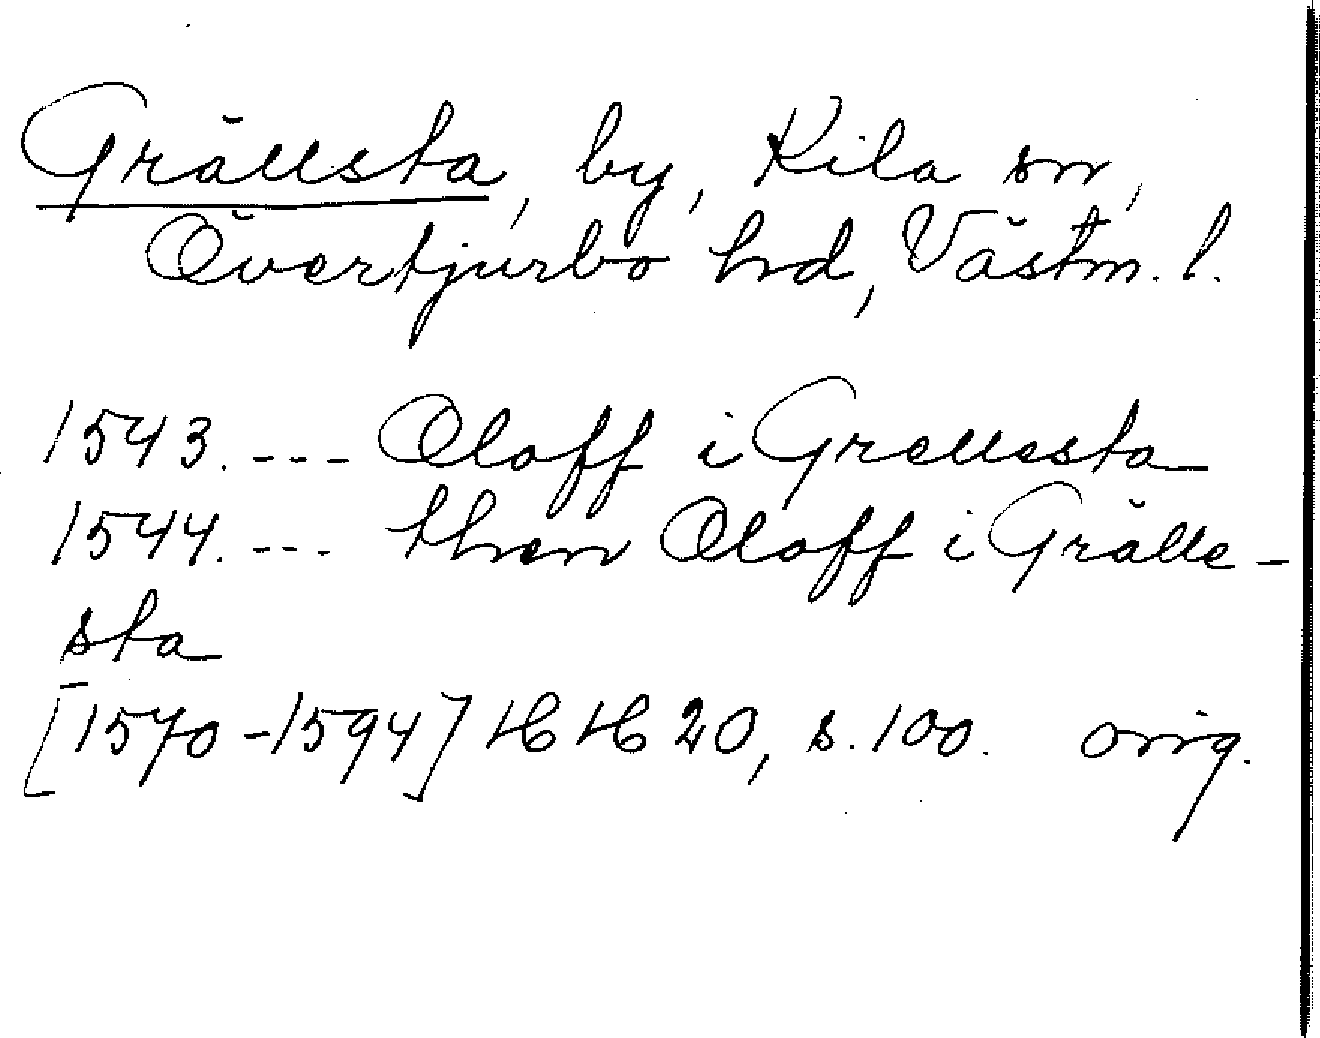 Grällsta, by, Kila sn,
Övertjurbo hd, Västm. l.
1543. --- Oloff i Grellesta
1544. --- then Oloff i Grälle-
sta
[1570-1594] HH 20, s. 100. orig.